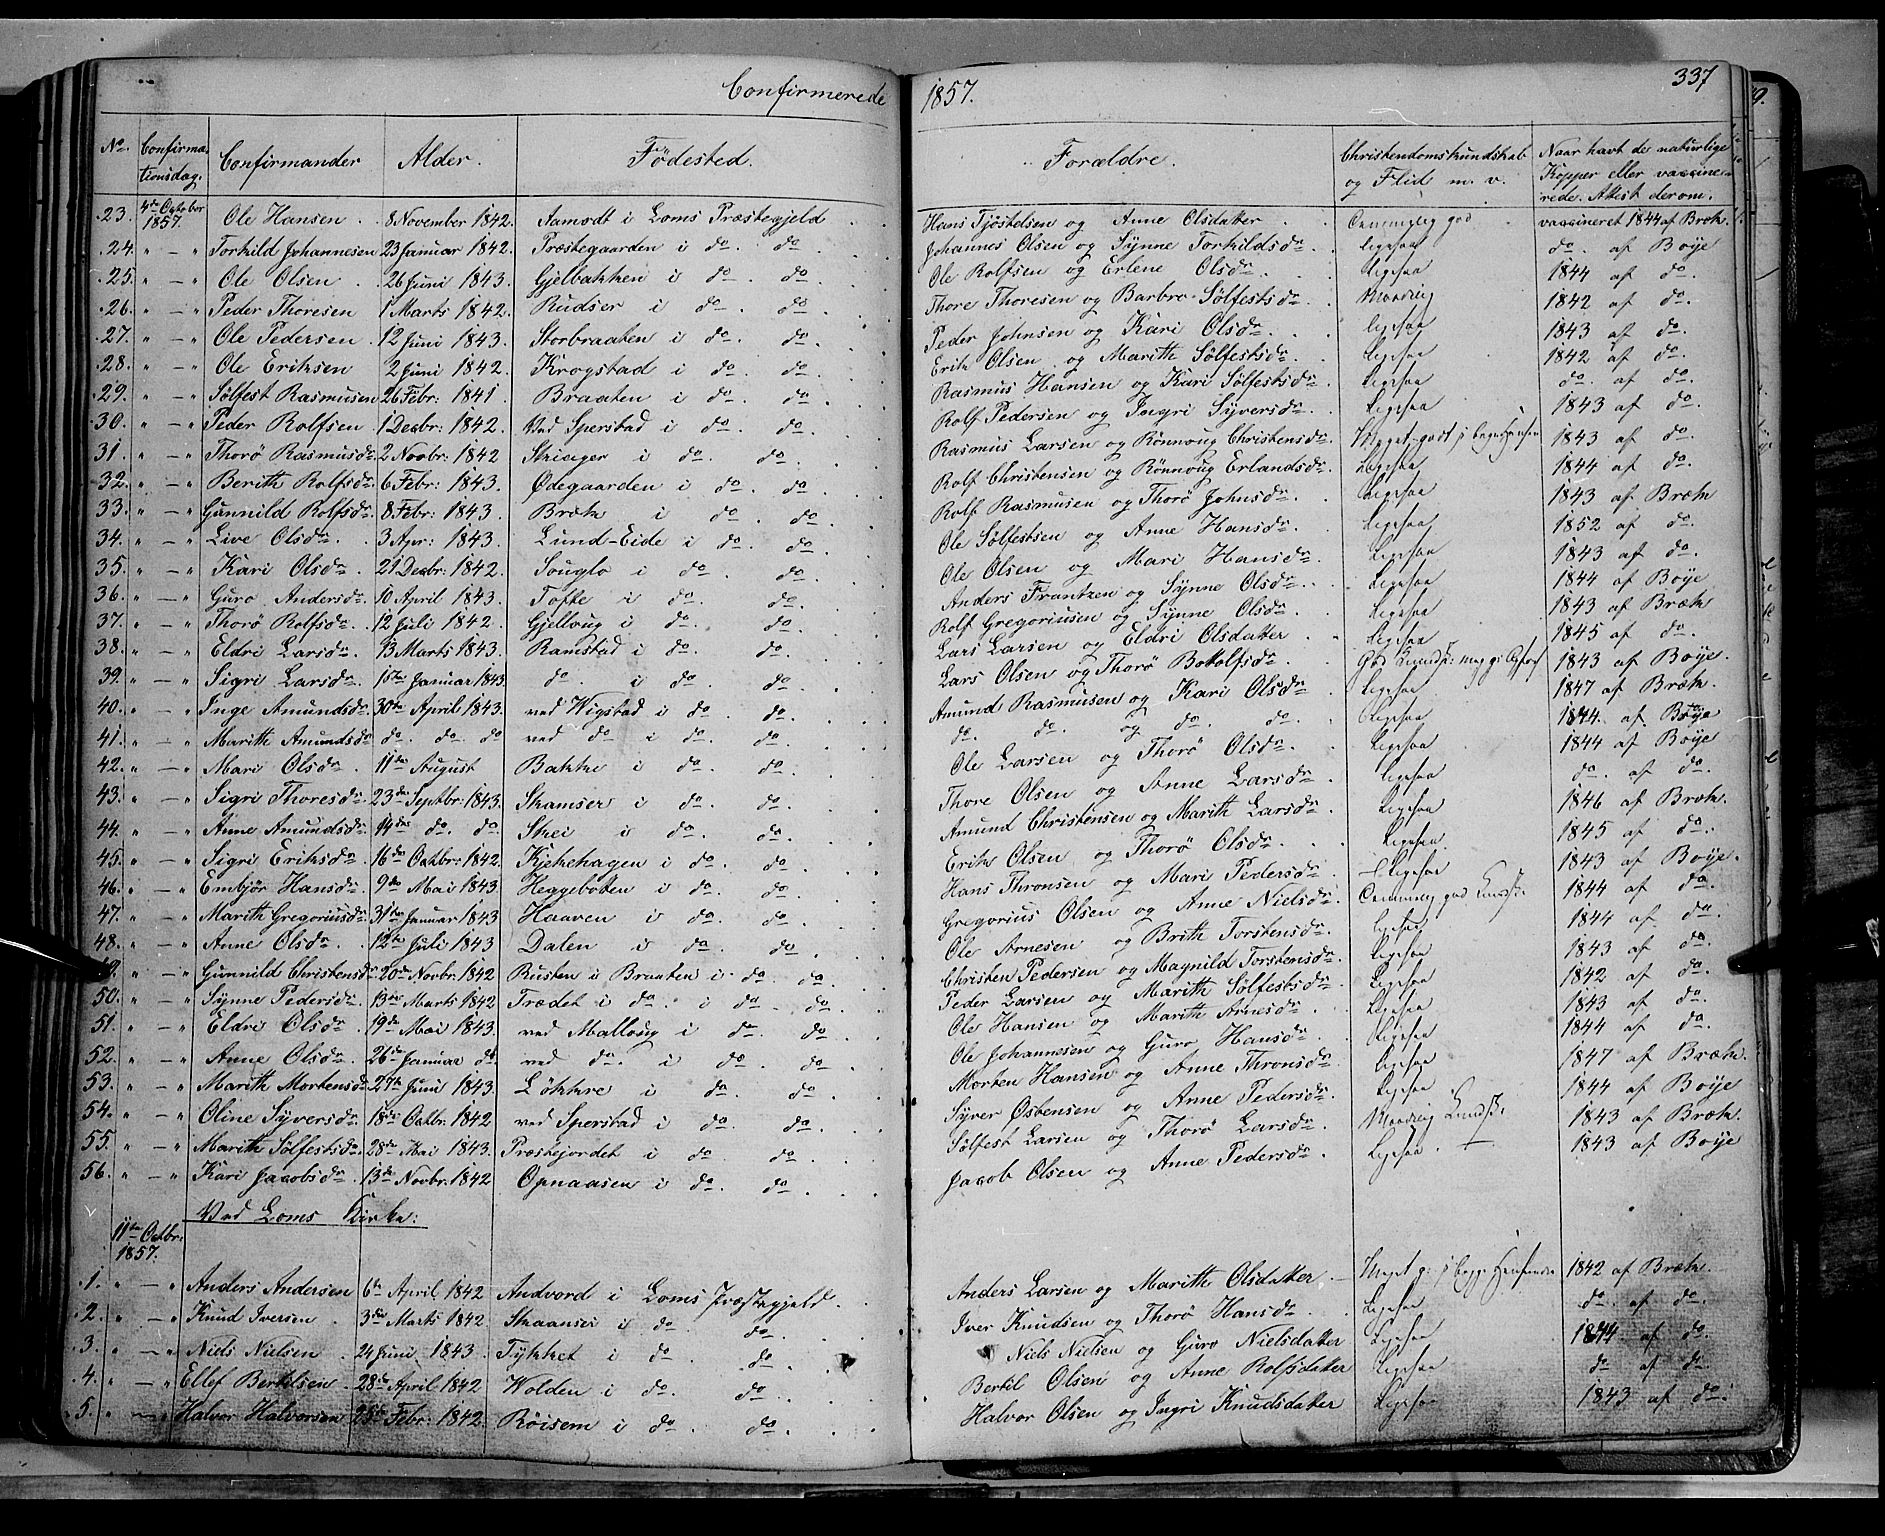 Confirmerede 1857. 337
No. Confirmationsdag. Confirmander Alder. Fødested. Forældre. Christendomskundskab og Flid m. v. Naar havt de naturlige Kopper eller vaccinerede. Attest derom.
23. 4de October 1857. Ole Hansen 8 November 1842. Aamodt i Loms Præstegjeld Hans Tjøstelsen og Anne Olsdatter Temmelig god vaccineret 1844 af Bræk.
24. " — " Torkild Johannesen 23 Januar 1842. Præstegaarden i do. do Johannes Olsen og Synne Torkildsdr ligesaa do. af Boye
25. " — " Ole Olsen 26 Juni 1843. Gjelbakken i do. do Ole Rolfsen og Erlene Olsdr ligesaa 1844 af do.
26. " — " Peder Thoresen 1 Marts 1842. Rudser i do. do Thore Thoresen og Barbro Sølfestsdr Maadelig 1842 af do.
27. " — " Ole Pedersen 12 Juni 1843. Storbraaten i do. do Peder Johnsen og Kari Olsdr ligesaa 1843 af do.
28. " — " Ole Eriksen 2 Juni 1842. Krogstad i do. do Erik Olsen og Marith Sølfestsdr ligesaa 1842 af do.
29. " — " Sølfest Rasmusen 26 Febr: 1841 Braaten i do. do Rasmus Hansen og Kari Sølfestsdr Ligesaa do. af do.
30. " — " Peder Rolfsen 1 Decbr: 1842. Ved Sperstad i do. do Rolf Pedersen og Ingri Syversdr Ligesaa 1843 af do.
31. " — " Thorø Rasmusdr 2 Novbr: 1842 Skiager i do. do Rasmus Larsen og Rønnoug Christensdr Meget godt i begge Henseender 1843 af do.
32. " — " Berith Rolfsdr 6 Febr: 1843. Ødegaarden i do. do Rolf Christensen og Rønnoug Erlandsdr Ligesaa 1844 af do.
33. " — " Gunnild Rolfsdr 8 Febr: 1843. Bræk i do. do Rolf Rasmusen og Thorø Johnsdr Ligesaa 1843 af Bræk
34. " — " Live Olsdr 3 Apr: 1843. Lund-Eide i do. do Ole Sølfestsen og Anne Hansdr Ligesaa 1852 af do.
35. " — " Kari Olsdr 21 Decbr: 1842. Souglo i do. do Ole Olsen og Mari Hansdr Ligesaa 1843 af do.
36. " — " Guro Andersdr 10 April 1843. Tofte i do. do Anders Frantzen og Synne Olsdr Ligesaa 1844 af Boye
37. " — " Thorø Rolfsdr 12 Juli 1842. Gjelloug i do. do Rolf Gregoriusen og Synne Olsdr Ligesaa 1843 af Bræk.
38. " — " Eldri Larsdr 13 Marts 1843. Ramstad i do. do Lars Larsen og Eldri Olsdatter Ligesaa 1845 af do.
39. " — " Sigri Larsdr 15te Januar 1843. do. i do. do Lars Olsen og Thorø Botolfsdr God Kundsk: 1843 af Boye.
40. " — " Inge Amundsdr 30te April 1843. ved Wigstad i do. do Amund Rasmusen og Kari Olsdr Ligesaa 1847 af Bræk.
41. " — " Marith Amundsdr do. do. do ved do i do. do do. do. og do. do. Ligesaa 1844. af Boye
42. " — " Mari Olsdr 11te August Bakke i do. do Ole Larsen og Thorø Olsdr Ligesaa 1844 af Boye
43. " — " Sigri Thoresdr 23de Septbr: 1843. Skamser i do. do Thore Olsen og Anne Larsdr ligesaa do. af do.
44. " — " Anne Amundsdr 14de do. do Skei i do. do Amund Christensen og Marith Larsdr Ligesaa 1846 af Bræk.
45. " — " Sigri Eriksdr 16de Octbr: 1842. Kjekehagen i do. do Erik Olsen og Thorø Olsdr Ligesaa. 1845 af do.
46. " — " Embjør Hansdr 9de Mai 1843. Heggebotten i do. do Hans Thronsen og Mari Pedersdr Ligesaa 1843 af Boye.
47. " — " Marith Gregoriusdr 31te Januar 1843 Haaven i do. do Gregorius Olsen og Anne Nielsdr Temmelig god Kundsk: 1844 af do.
48. " — " Anne Olsdr 12te Juli 1843 Dalen i do. do Ole Arnesen og Brith Torstensdr ligesaa 1844 af do
49. " — " Gunnild Christensdr 20de Novbr: 1842 Rusten i Braaten i do. do Christen Pedersen og Maynild Torstensdr ligesaa 1843 af do.
50. " — " Synne Pedersdr 13de Marts 1842 Trædet i do. i do. do Peder Larsen og Marith Sølfestsdr Ligesaa 1842 af do.
51. " — " Eldri Olsdr 19de Mai 1843. ved Malloug i do do Ole Hansen og Marith Arnesdr Ligesaa 1843 af do.
52. " — " Anne Olsdr 26de Januar do ved do. i do. do Ole Johannesen og Guro Hansdr Ligesaa 1844 af do.
53. " — " Marith Mortensdr 27de Juni 1843. Løkkre i do. do Morten Hansen og Anne Thronsdr Ligesaa 1847 af Bræk.
54. " — " Oline Syversdr 18de Octbr: 1842 ved Sperstad i do. do Syver Østensen og Anne Pedersdr Ligesaa 1844 af Boye
55. " — " Marith Sølfestsdr 28de Mai 1843. Præstejordet i do. do Sølfest Larsen og Thorø Larsdr Maadelig Kundsk: 1843 af Bræk.
56. " — " Kari Jacobsdr 13de Novbr: 1842 Opnaasen i do. do Jacob Olsen og Anne Pedersdr Ligesaa 1843 af Boye
Ved Loms Kirke:
11te Octbr: 1857.
1. " — " Anders Andersen 6te April 1842 Andvord i Loms Præstegjeld. Anders Larsen og Marith Olsdatter Meget g: i begge Henseender 1842 af Bræk.
2. " — " Knud Iversen 3die Marts 1842 Skaanser i do. do Iver Knudsen og Thorø Hansdr Ligesaa do. af do.
3. " — " Niels Nielsen 24 Juni 1843. Tykket i do. do Niels Nielsen og Guro Nielsdatter Ligesaa 1844 af do.
4. " — " Ellef Bertilsen 28de April 1842 Wolden i do. do Bertil Olsen og Anne Rolfsdatter Ligesaa do af do
5. " — " Halvor Halvorsen 25de Febr: 1842. Røisem i do do Halvor Olsen og Ingri Knudsdatter Ligesaa 1843 af do.